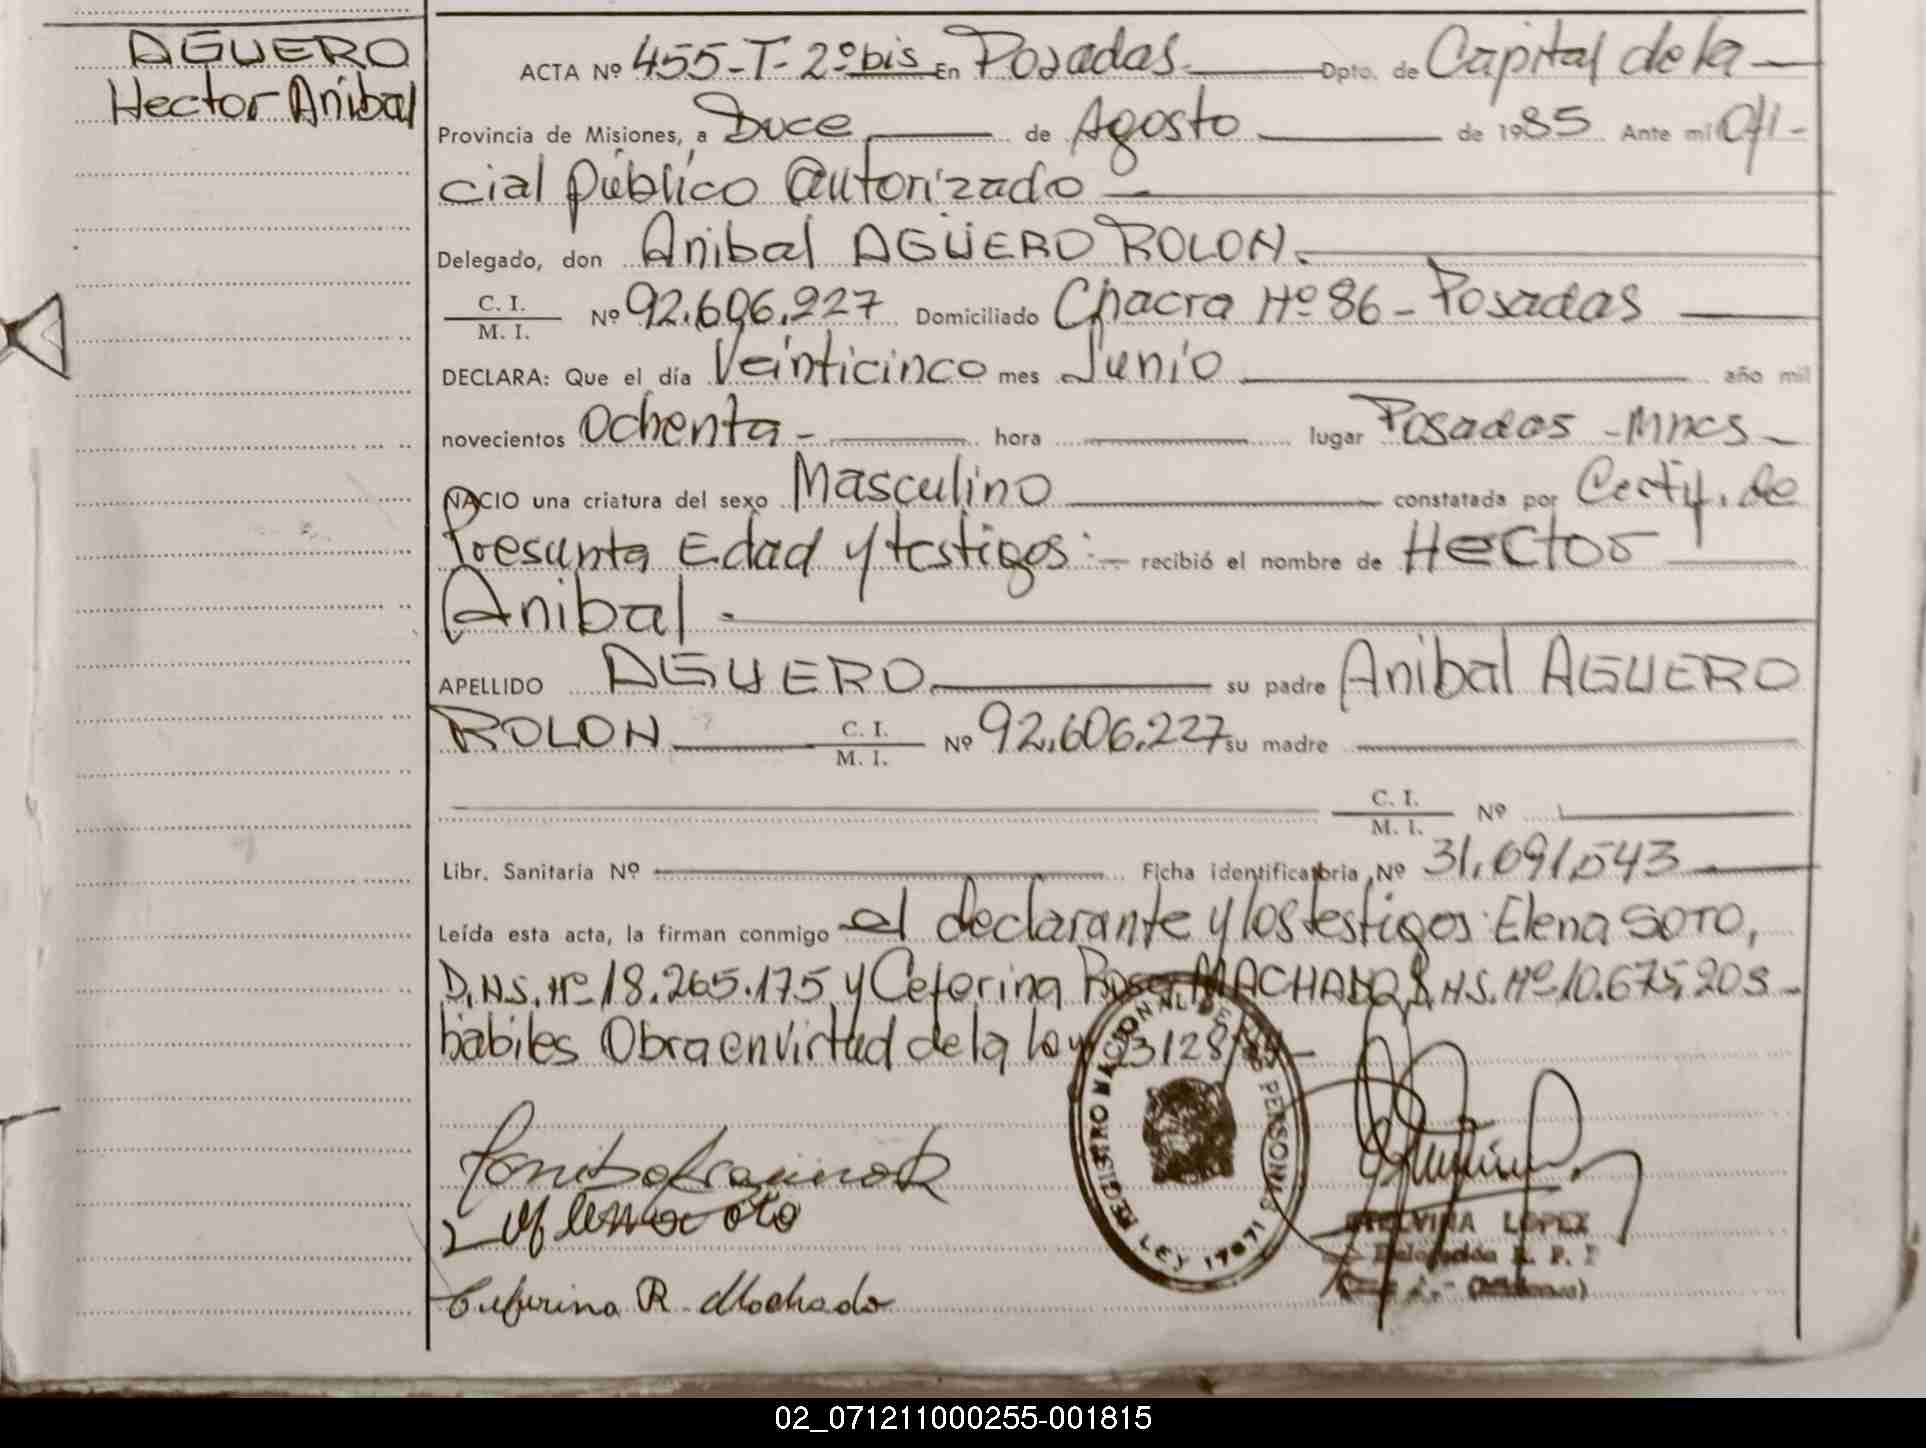 AGUERO
Hector Anibal
ACTA Nº 455-T-2º bis En Posadas Dpto. de Capital de la
Provincia de Misiones, a Doce de Agosto de 1985 Ante mi Ofi-
cial Público autorizado
Delegado, don Anibal AGÜERO ROLON.
C. I.
M. I. Nº 92.606.227 Domiciliado Chacra Nº 86 - Posadas
DECLARA: Que el día Veinticinco mes Junio año mil
novecientos Ochenta - hora lugar Posadas - Mnes -
NACIO una criatura del sexo Masculino constatada por Certif. de
Presunta Edad y testigos: - recibió el nombre de Hector
Anibal -
APELLIDO AGUERO su padre Anibal AGUERO
ROLON C. I.
M. I. Nº 92.606.227 su madre
C. I.
M. I. Nº
Libr. Sanitaria Nº Ficha identificatoria Nº 31.691.543
Leída esta acta, la firman conmigo el declarante y los testigos: Elena SOTO,
D.N.S. Nº 18.265.175 y Ceferina Rosa MACHADO D.N.S. Nº 10.675.203 -
hábiles Obra en virtud de la ley 23128/84 -
REGISTRO NACIONAL DE LAS PERSONAS
LEY 17671
Ceferina R. Machado
LOPEZ
Delegación R. P.
(Misiones)
02_071211000255-001815